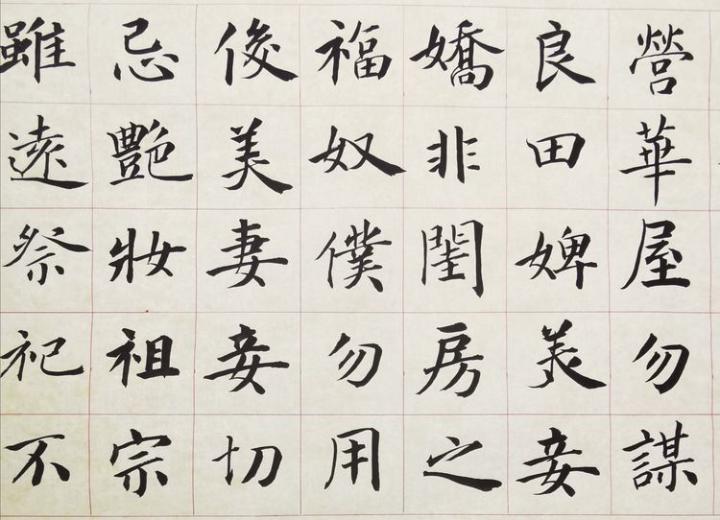 營華屋勿謀
良田婢美妾
嬌非閨房之
福奴僕勿用
俊美妻妾切
忌艷妝祖宗
雖遠祭祀不